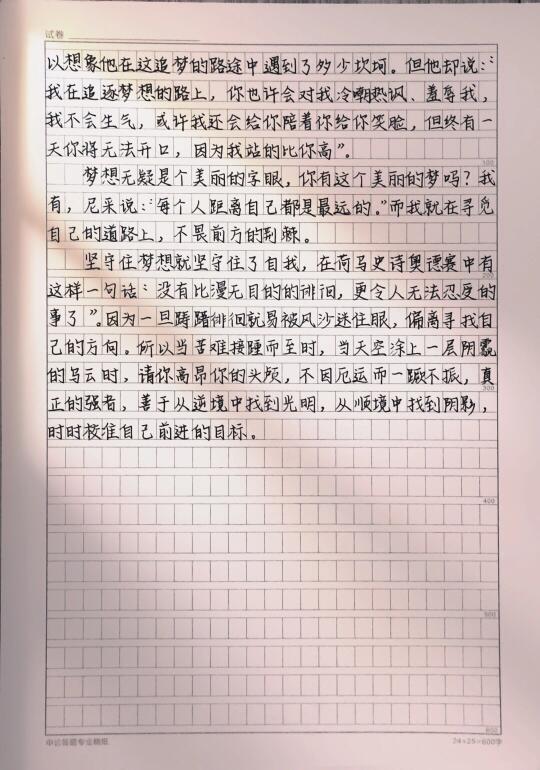 试卷
以想象他在这追梦的路途中遇到了多少坎坷。但他却说:“
我在追逐梦想的路上,你也许会对我冷嘲热讽、羞辱我,
我不会生气,或许我还会给你陪着你给你笑脸,但终有一
天你将无法开口,因为我站的比你高”。
100
梦想无疑是个美丽的字眼,你有这个美丽的梦吗?我
有,尼采说:“每个人距离自己都是最远的。”而我就在寻觅
自己的道路上,不畏前方的荆棘。
坚守住梦想就坚守住了自我,在荷马史诗奥德赛中有
200
这样一句话:“没有比漫无目的的徘徊,更令人无法忍受的
事了”。因为一旦踌躇徘徊就易被风沙迷住眼,偏离寻找自
己的方向。所以当苦难接踵而至时,当天空涂上一层阴霾
的乌云时,请你高昂你的头颅,不因厄运而一蹶不振,真
300
正的强者,善于从逆境中找到光明,从顺境中找到阴影,
时时校准自己前进的目标。
400
500
600
申论答题专业稿纸
24×25=600字